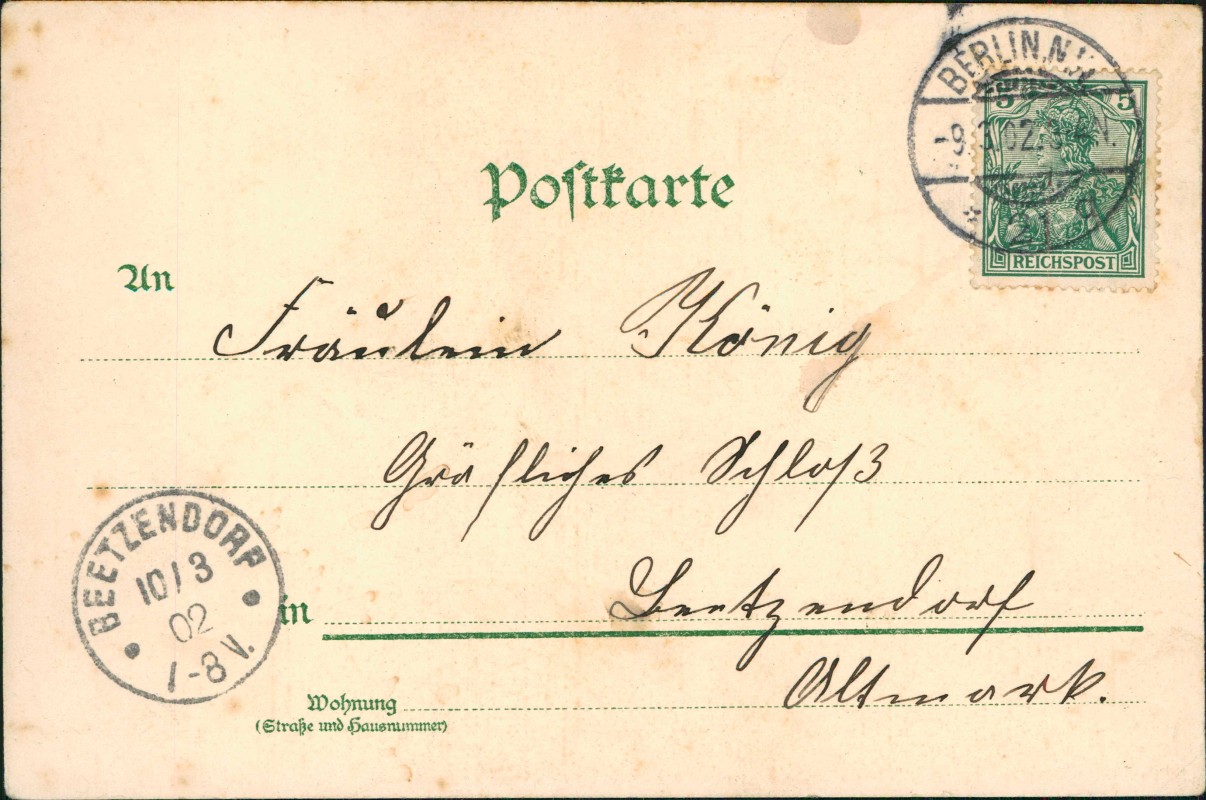 BERLIN, N.W.
5 5
-9.3.02.
21
REICHSPOST
Postkarte
An
Fräulein König
Gräfliches Schloß
in Beetzendorf
Altmark.
Wohnung
(Straße und Hausnummer)
BEETZENDORF
10/3
02
7-8 V.